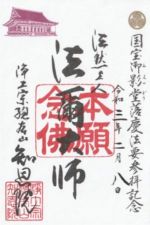 国宝御影堂落慶法要参拝記念
令和三年二月八日
法然上人
法爾大師
本願
念佛
浄土宗総本山
知恩院